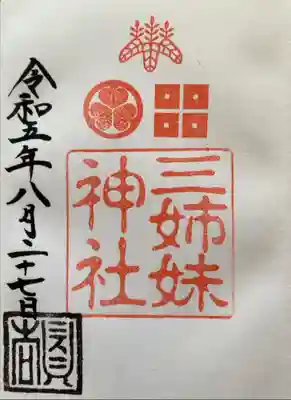 三姉妹
神社
令和五年八月二十七日